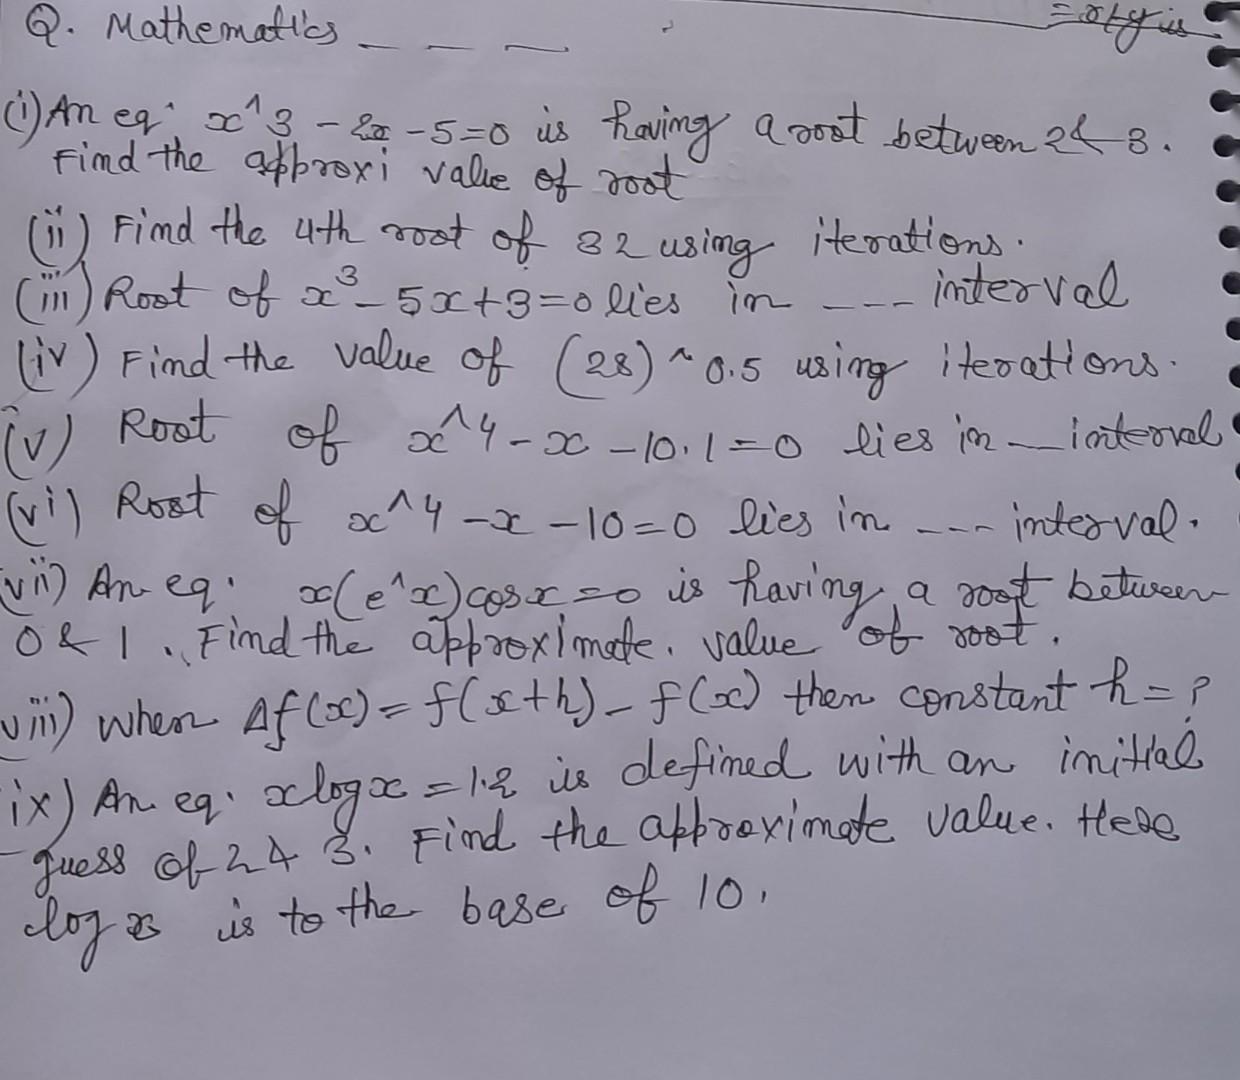 = x+y is
Q. Mathematics _ _ _
(i) An eq. x^3 - 2x - 5=0 is having a root between 2 & 3.
Find the approxi value of root
(ii) Find the 4th root of 32 using iterations.
(iii) Root of x³ - 5x+3=0 lies in --- interval
(iv) Find the value of (28)^0.5 using iterations.
(v) Root of x^4 - x - 10.1=0 lies in _ interval
(vi) Root of x^4 - x - 10=0 lies in --- interval.
vii) An eq. x(e^x)cosx=0 is having a root between
0 & 1. Find the approximate. value of root.
viii) when Δf(x) = f(x+h) - f(x) then constant h=?
ix) An eq. xlogx = 1.2 is defined with an initial
guess of 2 & 3. Find the approximate value. Here
log x is to the base of 10.